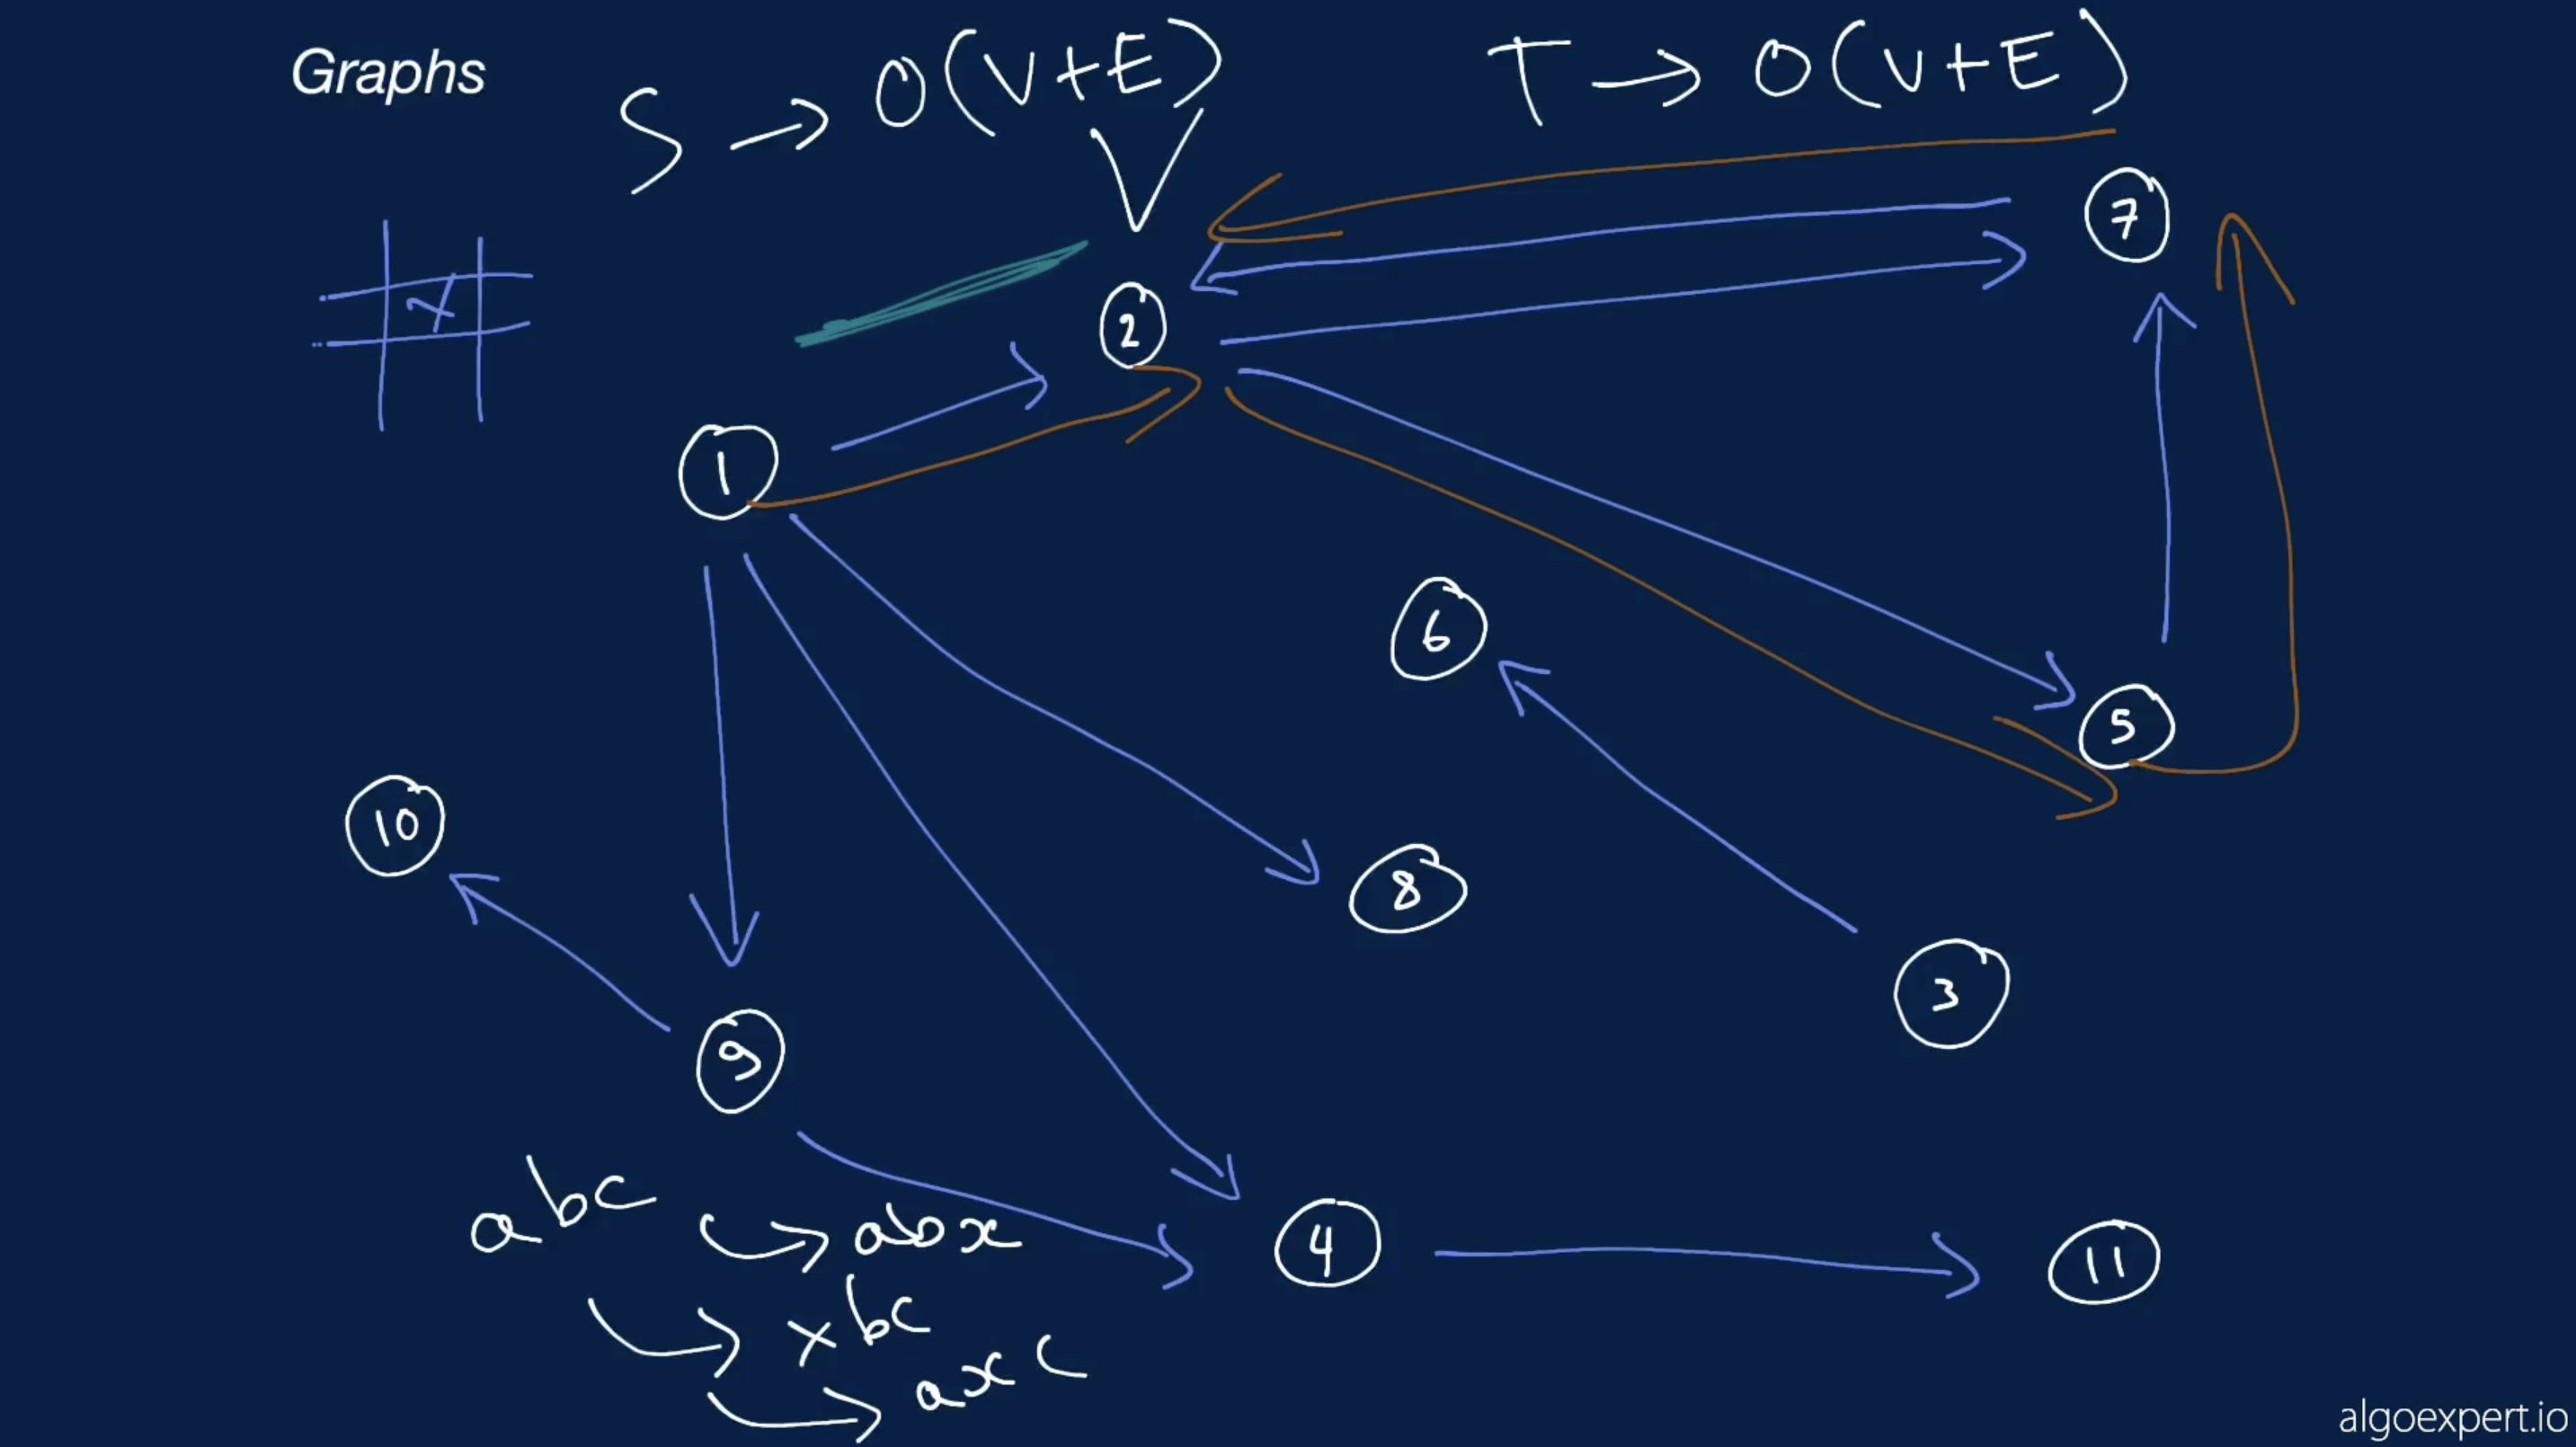 Graphs
S → O(V+E)
T → O(V+E)
x
7
2
1
6
5
10
8
3
9
4
11
abc
abx
xbc
axc
algoexpert.io